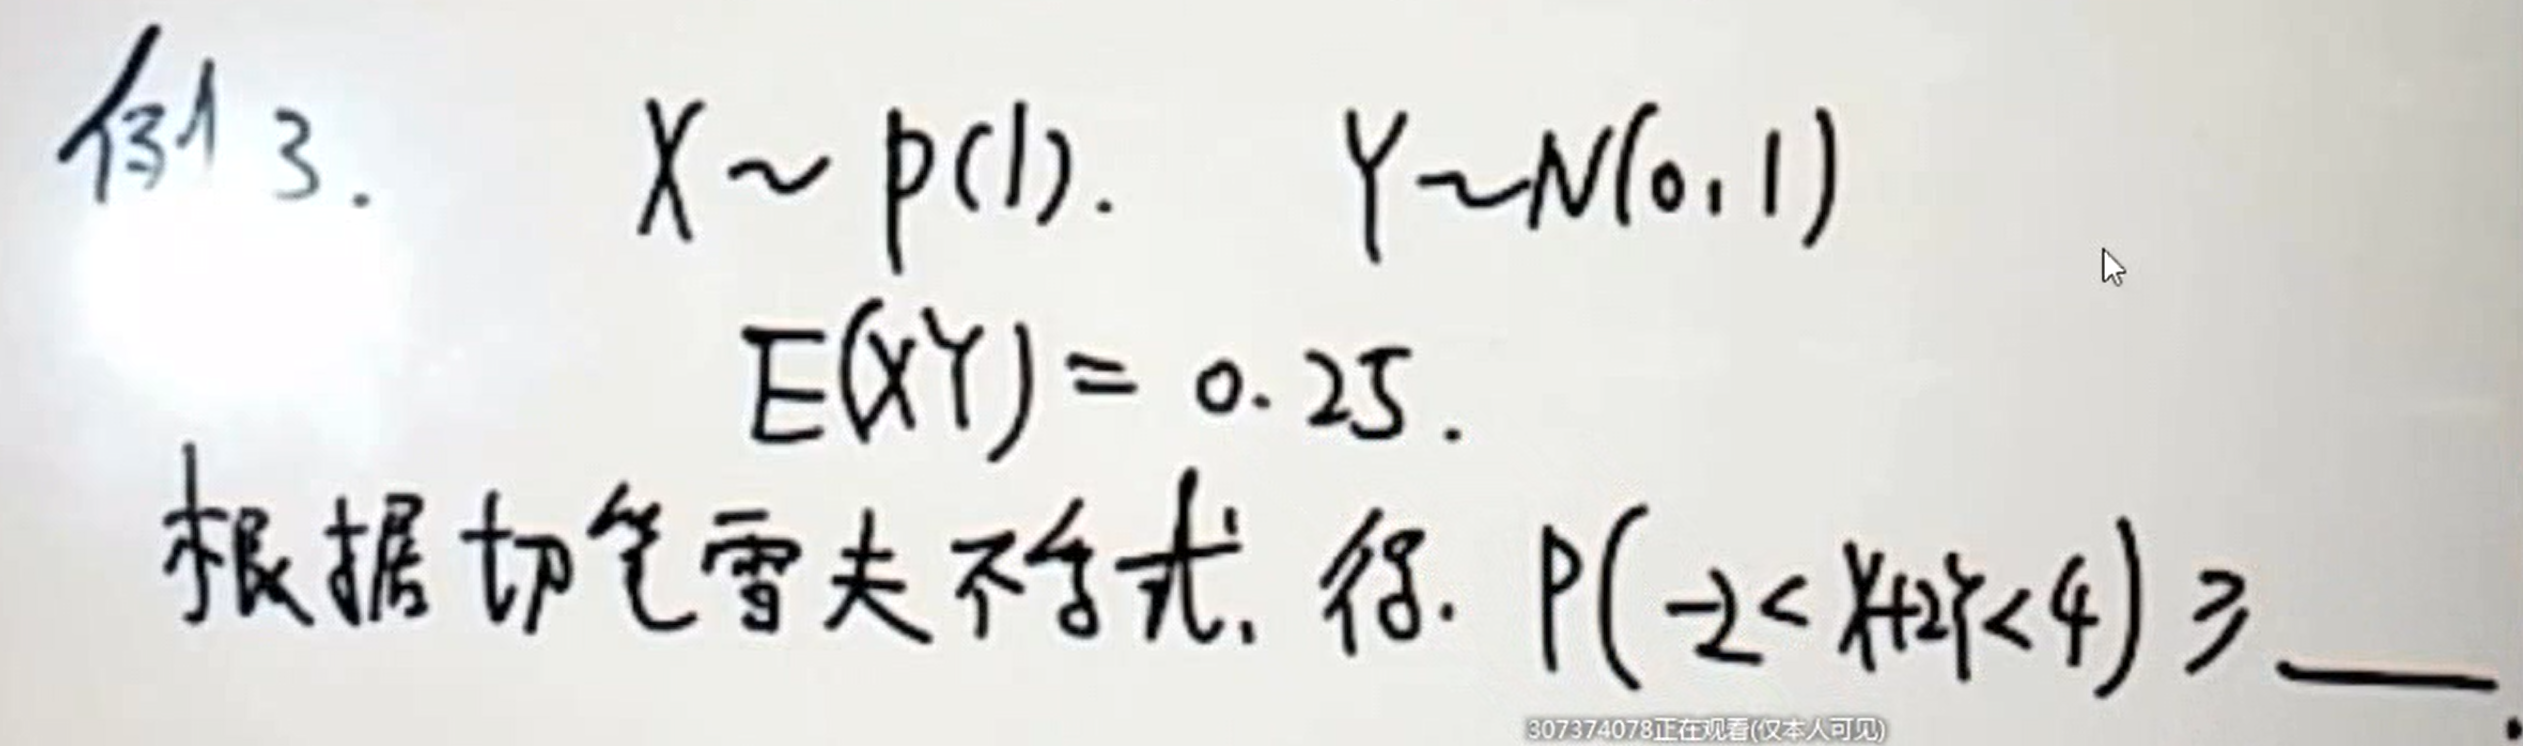 例3. X~P(1). Y~N(0,1)
E(XY)=0.25.
根据切比雪夫不等式,得.P(-2<X+2Y<4)≥___.
307374078正在观看(仅本人可见)